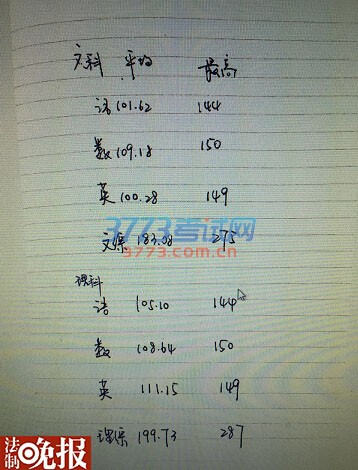 文科 平均 最高
语 101.62 144
数 109.18 150
英 100.28 149
3773考试网
www.3773.com.cn
文综 183.08 275
理科
语 105.10 144
数 108.64 150
英 111.15 149
理综 199.73 287
法制晚报